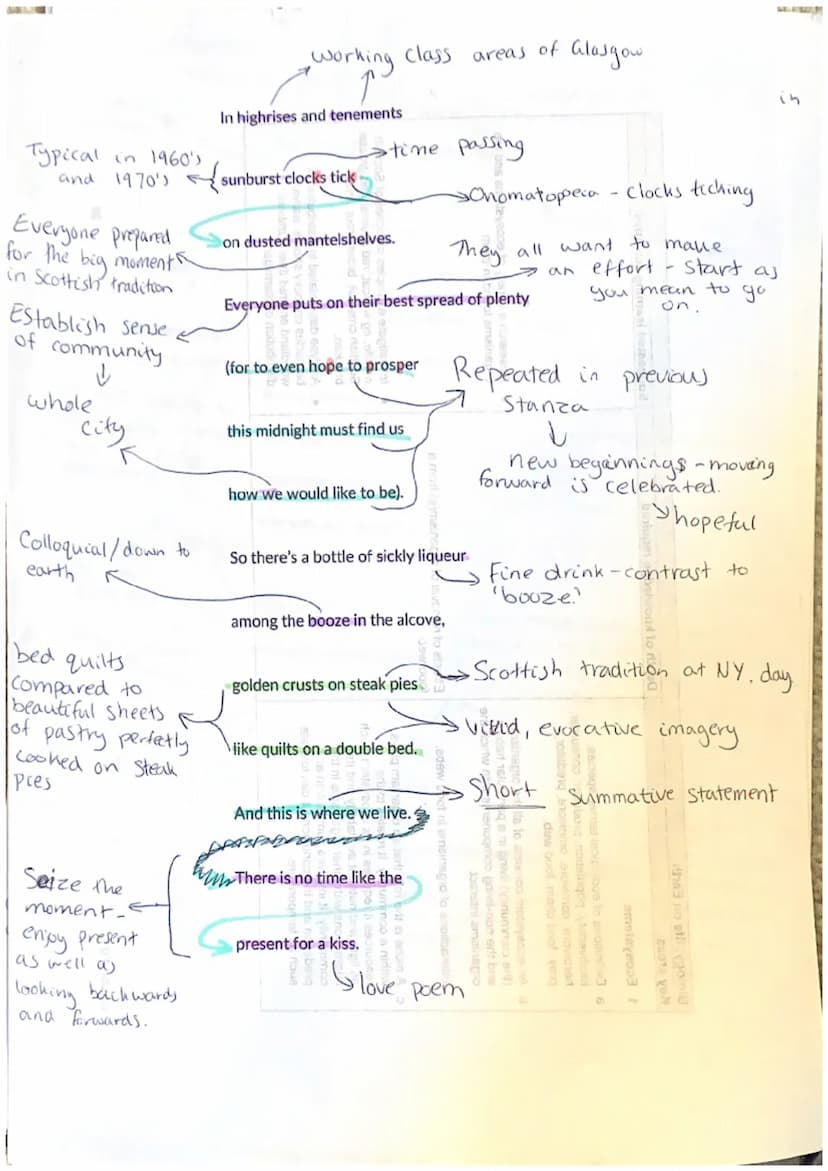 working class areas of Glasgow
in
In highrises and tenements
Typical in 1960's
and 1970's
time passing
sunburst clocks tick
Onomatopoeia - clocks ticking
Everyone prepared
for the big moment
in Scottish tradition
on dusted mantelshelves.
They all want to make
an effort - start as
you mean to go
on.
Everyone puts on their best spread of plenty
Establish sense
of community
whole
city
(for to even hope to prosper
Repeated in previous
Stanza
this midnight must find us
new beginnings - moving
forward is celebrated.
hopeful
how we would like to be).
Colloquial/down to
earth
So there's a bottle of sickly liqueur
Fine drink - contrast to
'booze.'
among the booze in the alcove,
bed quilts
compared to
beautiful sheets
of pastry perfectly
cooked on steak
pies
golden crusts on steak pies
Scottish tradition at NY. day
Vivid, evocative imagery
like quilts on a double bed.
Short summative statement
And this is where we live.
There is no time like the
Seize the
moment -
enjoy present
as well as
looking backwards
and forwards.
present for a kiss.
love poem